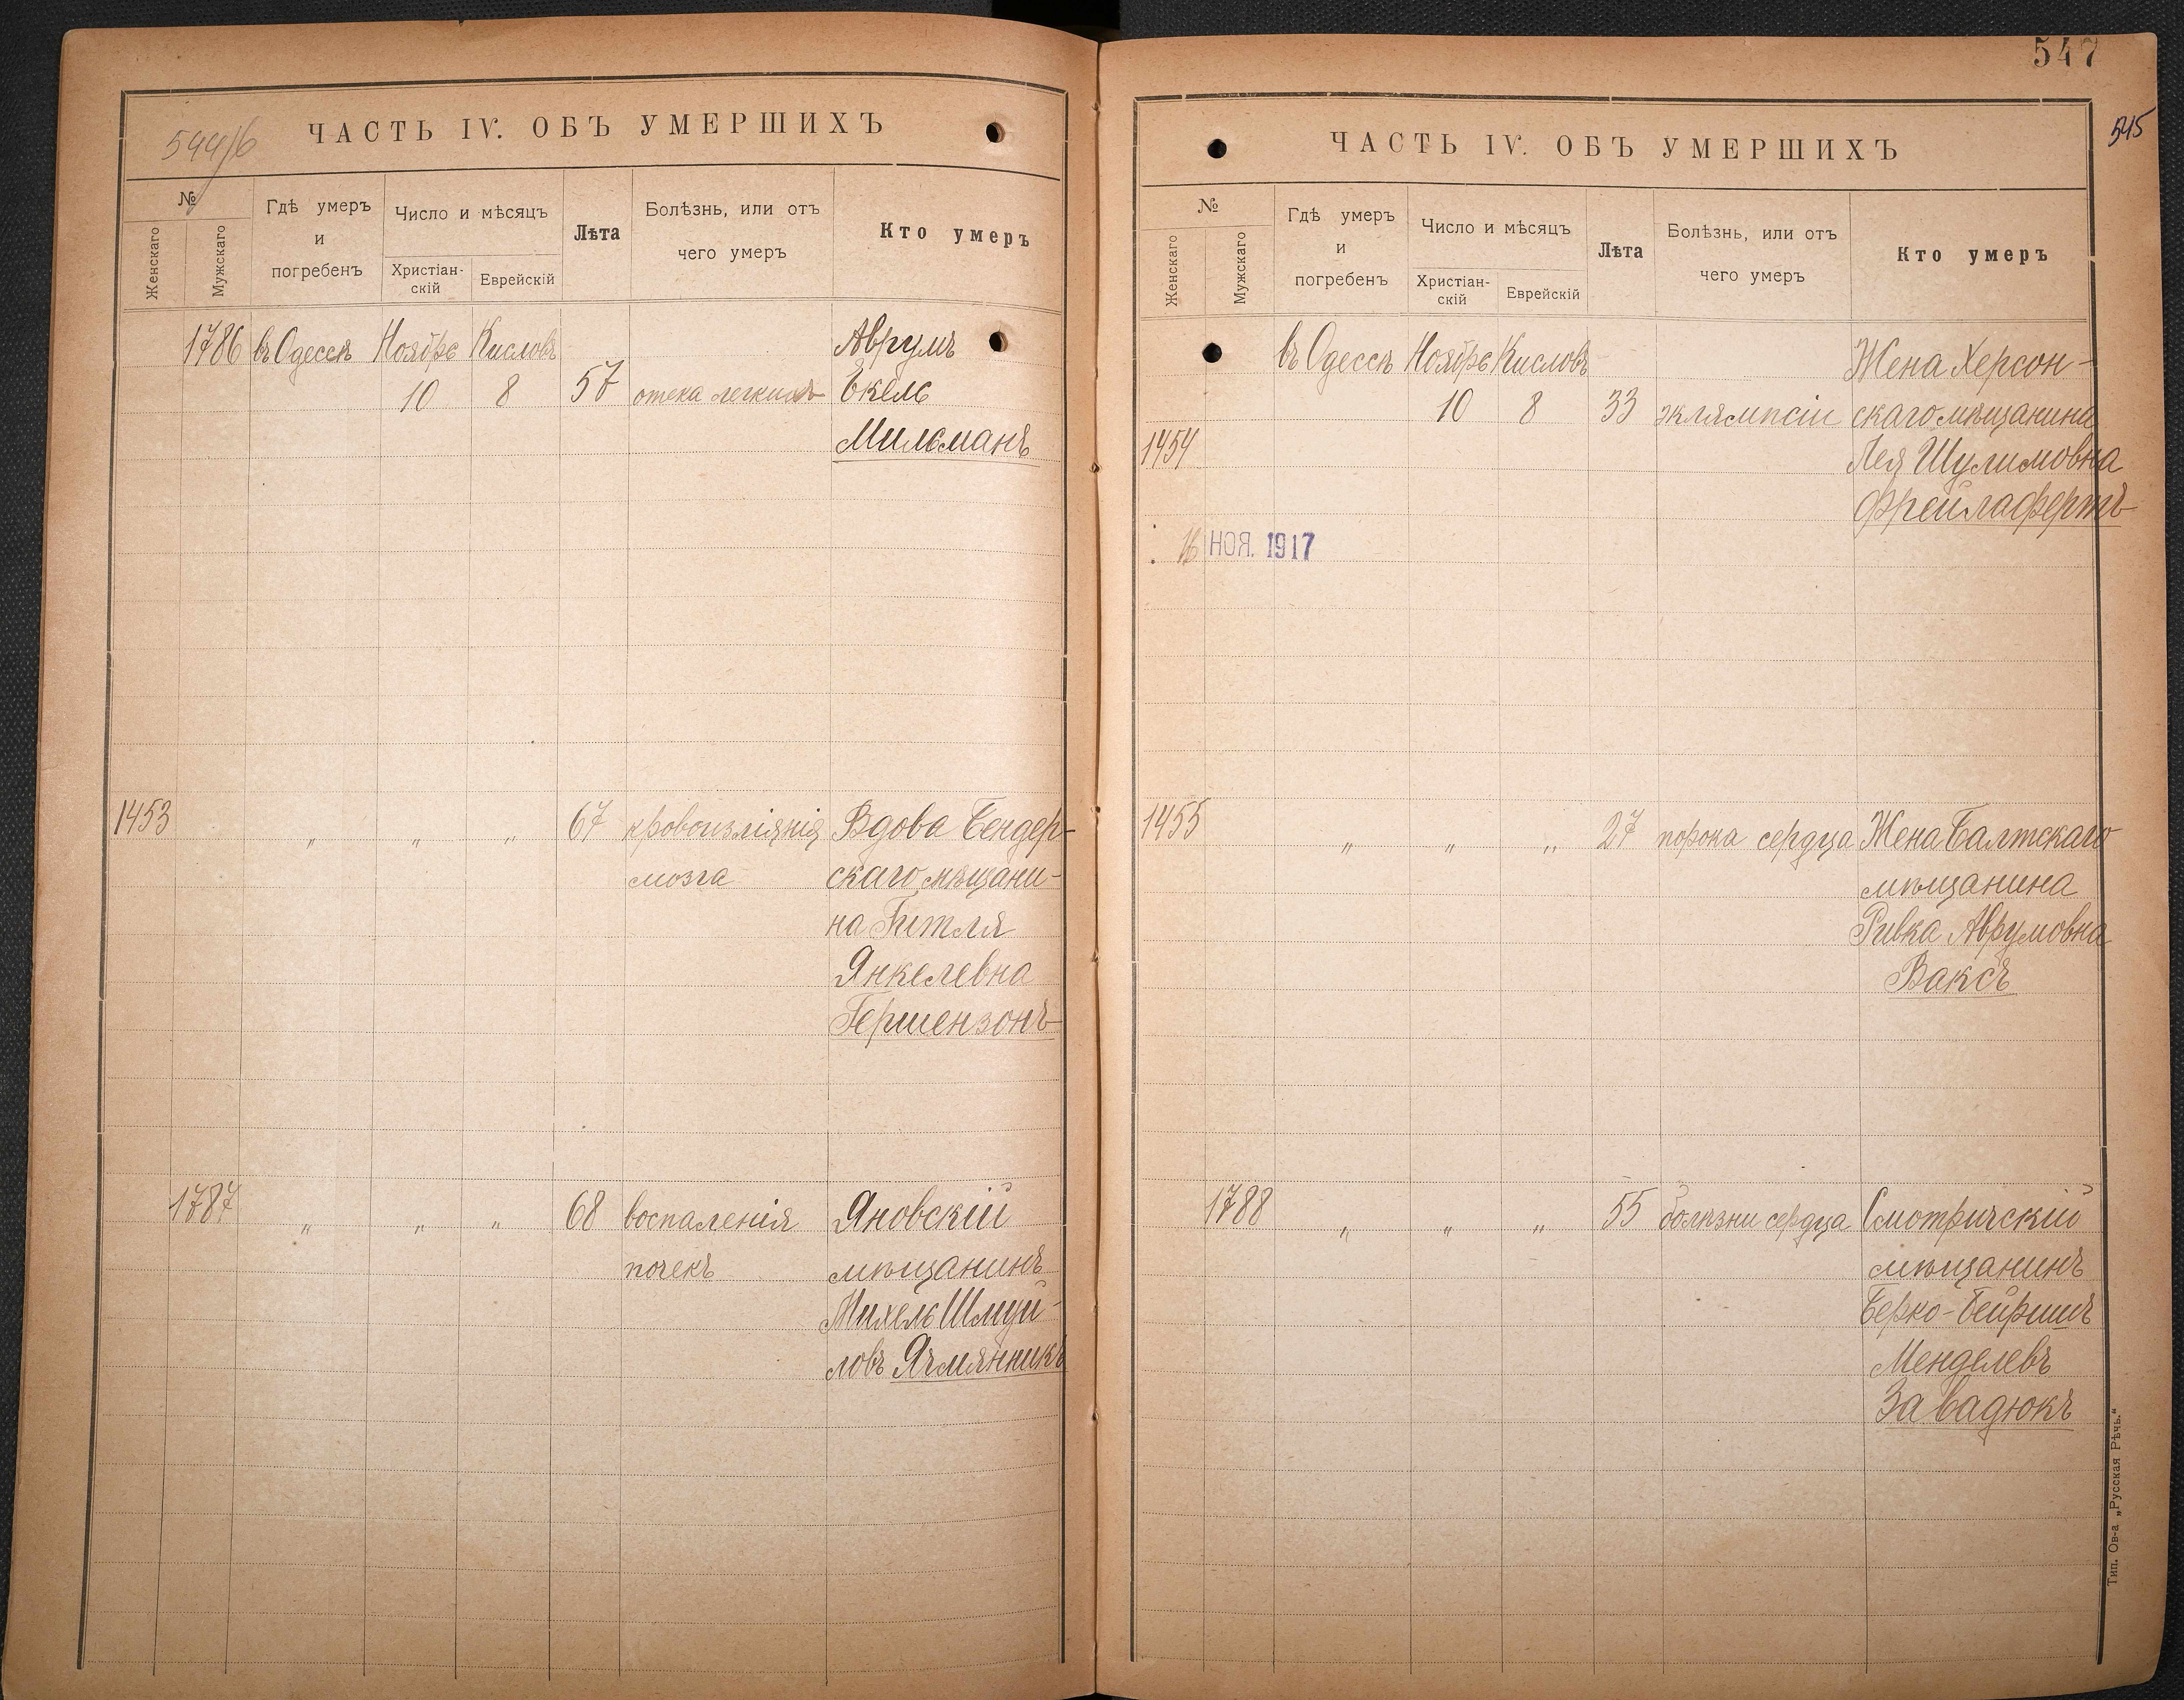 544/б
ЧАСТЬ IV. ОБЪ УМЕРШИХЪ
№
Женскаго
Мужскаго
Гдѣ умеръ
и
погребенъ
Число и мѣсяцъ
Христіан-
скій
Еврейскій
Лѣта
Болѣзнь, или отъ
чего умеръ
Кто умеръ
1786 въ Одессѣ Ноябрь Кисловъ Аврумъ
10 8 57 отека легкихъ Екель
Мильманъ
1453 " " " 67 кровоизліянія Вдова Бендер-
мозга скаго мѣщани-
на Гитля
Янкелевна
Гершензонъ
1787 " " " 68 воспаленія Яновскій
почекъ мѣщанинъ
Михель Шмуй-
ловъ Ячмянникъ
547
545
ЧАСТЬ IV. ОБЪ УМЕРШИХЪ
№
Женскаго
Мужскаго
Гдѣ умеръ
и
погребенъ
Число и мѣсяцъ
Христіан-
скій
Еврейскій
Лѣта
Болѣзнь, или отъ
чего умеръ
Кто умеръ
въ Одессѣ Ноябрь Кисловъ Жена Херсон-
10 8 33 эклямпсіи скаго мѣщанина
1454 Лея Шулимовна
Фрейлафертъ
16 НОЯ. 1917
1455 " " " 27 порока сердца Жена Балтскаго
мѣщанина
Ривка Аврумовна
Ваксъ
1788 " " " 55 болѣзни сердца Смотричскій
мѣщанинъ
Берко-Бейришъ
Менделевъ
Завадюкъ
Тип. Ов-а „Русская Рѣчь.“